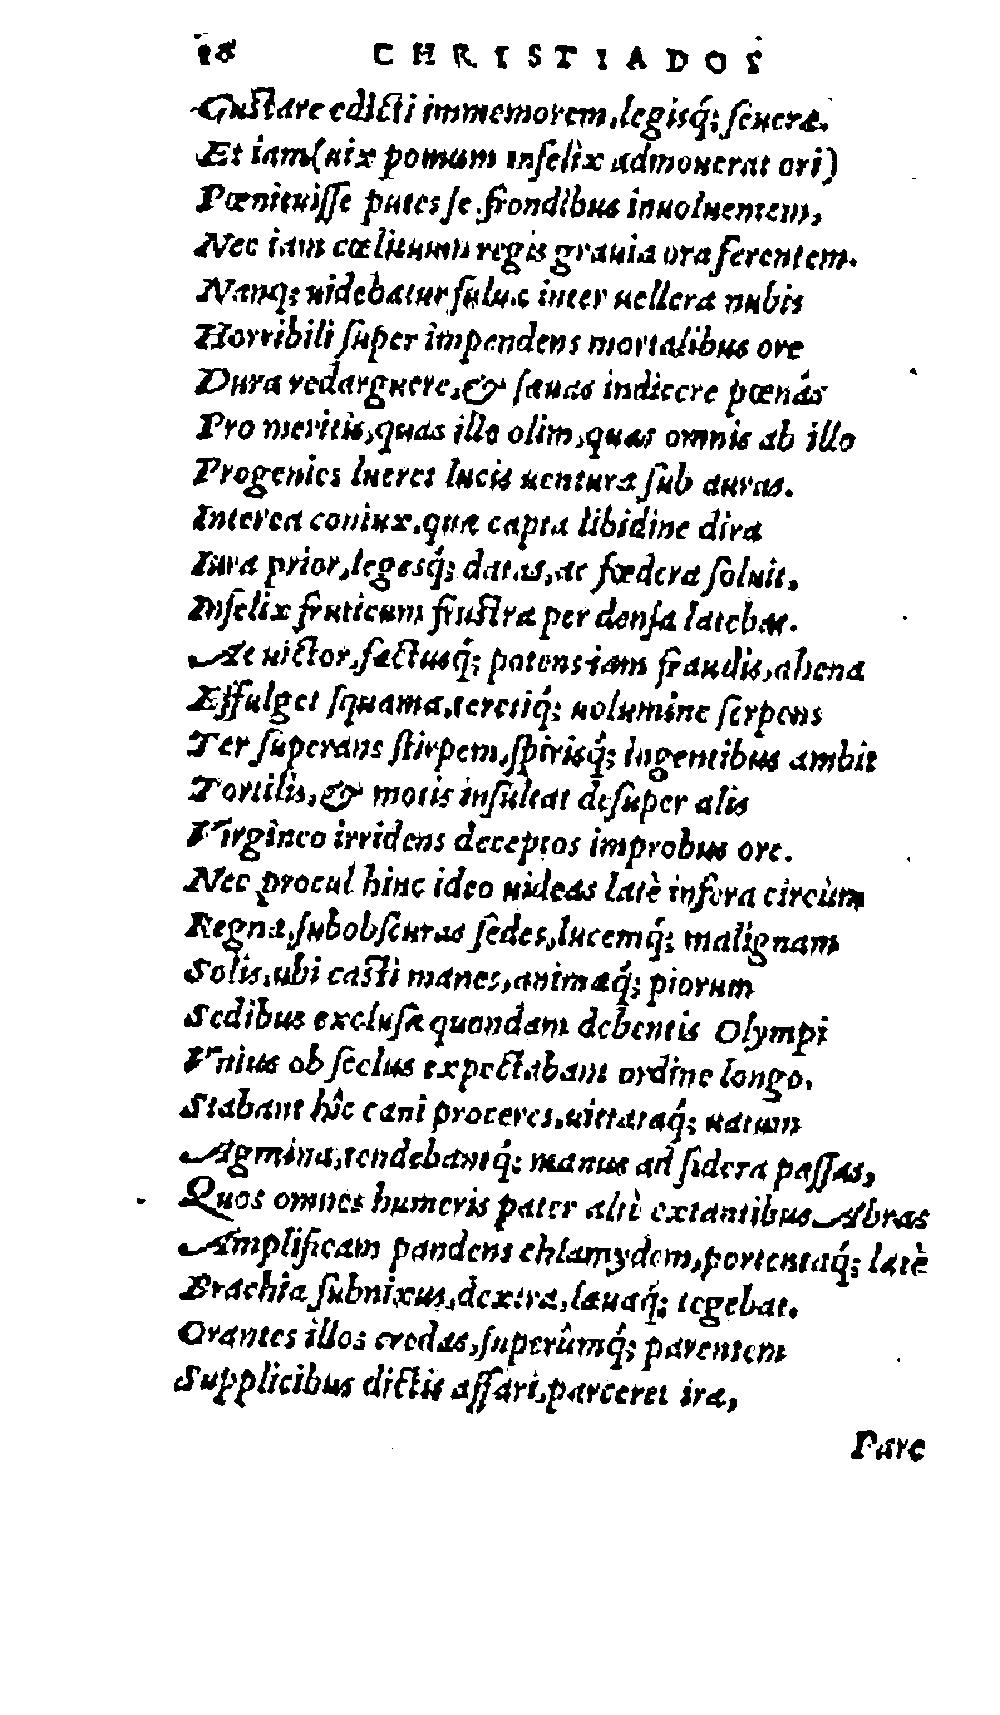 18 CHRISTIADOS
Gustare edicti immemorem, legisq́; seueræ.
Et iam (uix pomum infelix admouerat ori)
Pœnituisse putes se frondibus inuoluentem,
Nec iam cœlitumm regis grauia ora ferentem.
Nanq; uidebatur fuluæ inter uellera nubis
Horribili super impendens mortalibus ore
Dura redarguere, & sæuas indicere pœnas
Pro meritis, quas ille olim, quas omnis ab illo
Progenies lueret lucis uentura sub auras.
Interea coniux, quæ capta libidine dira
Iura prior, legesq́; datas, ac fœdera soluit,
Infelix fruticum frustra per densa latebat.
At uictor, factusq́; potens iam fraudis, ahena
Effulget squama, teretiq́; uolumine serpens
Ter superans stirpem, spirisq́; ingentibus ambit
Tortilis, & motis insultat desuper alis
Virgineo irridens deceptos improbus ore.
Nec procul hinc ideo uideas latè infera circùm
Regna, subobscuras sedes, lucemq́; malignam
Solis, ubi casti manes, animæq́; piorum
Sedibus exclusæ quondam debentis Olympi
Vnius ob scelus expectabant ordine longo.
Stabant hîc cani proceres, uittataq́; uatum
Agmina, tendebantq́; manus ad sidera passas,
Quos omnes humeris pater altè extantibus Abras
Amplificam pandens chlamydem, portentaq́; latè
Brachia subnixus, dextra, læuaq́; tegebat.
Orantes illos credas, superûmq́; parentem
Supplicibus dictis affari, parceret iræ,
Parc